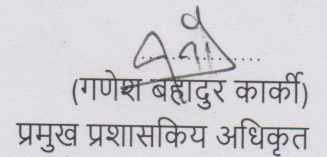 (गणेश बहादुर कार्की)
प्रमुख प्रशासकिय अधिकृत